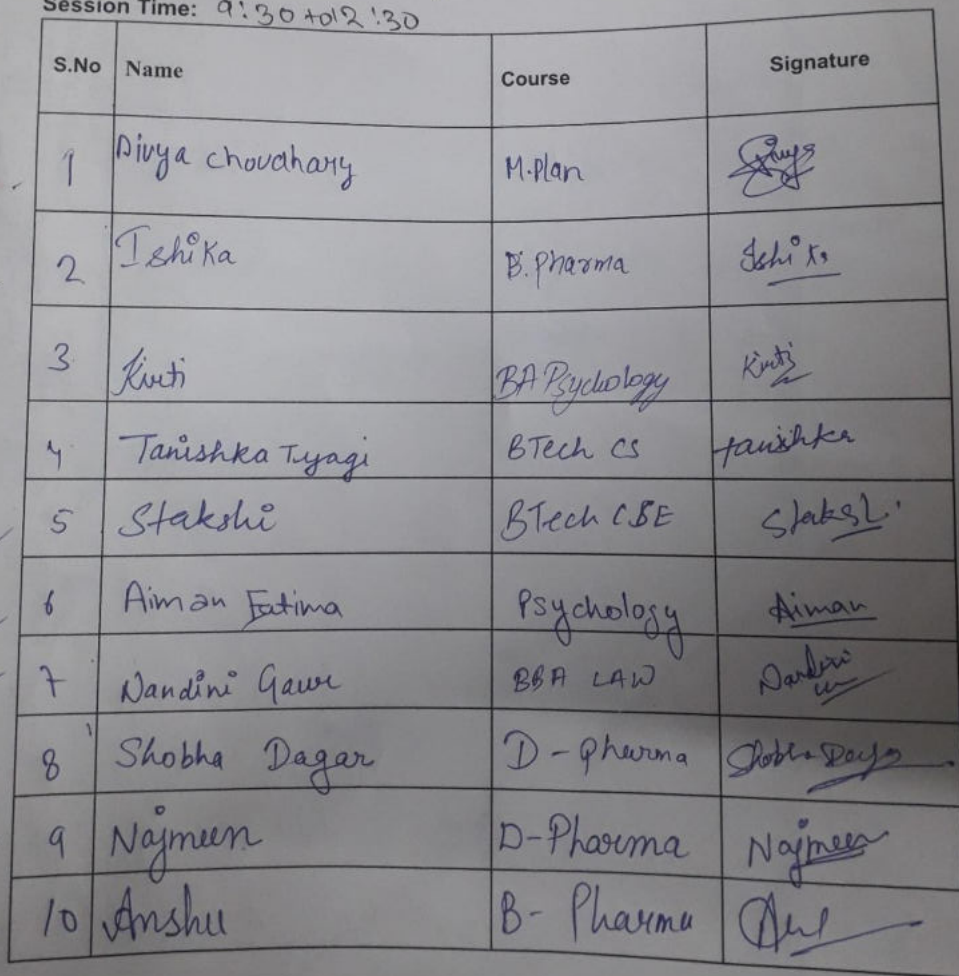 Session Time: 9:30 to 12:30
S.No Name Course Signature
1 Divya Choudhary M.Plan Divya
2 Ishika B.Pharma Ishika
3 Kirti BA Psychology Kirti
4 Tanishka Tyagi BTech CS tanishka
5 Stakshi BTech CSE Stakshi
6 Aiman Fatima Psychology Aiman
7 Nandini Gaur BBA LAW Nandini
8 Shobha Dagar D-Pharma Shobha Dagar
9 Najmeen D-Pharma Najmeen
10 Anshu B-Pharma